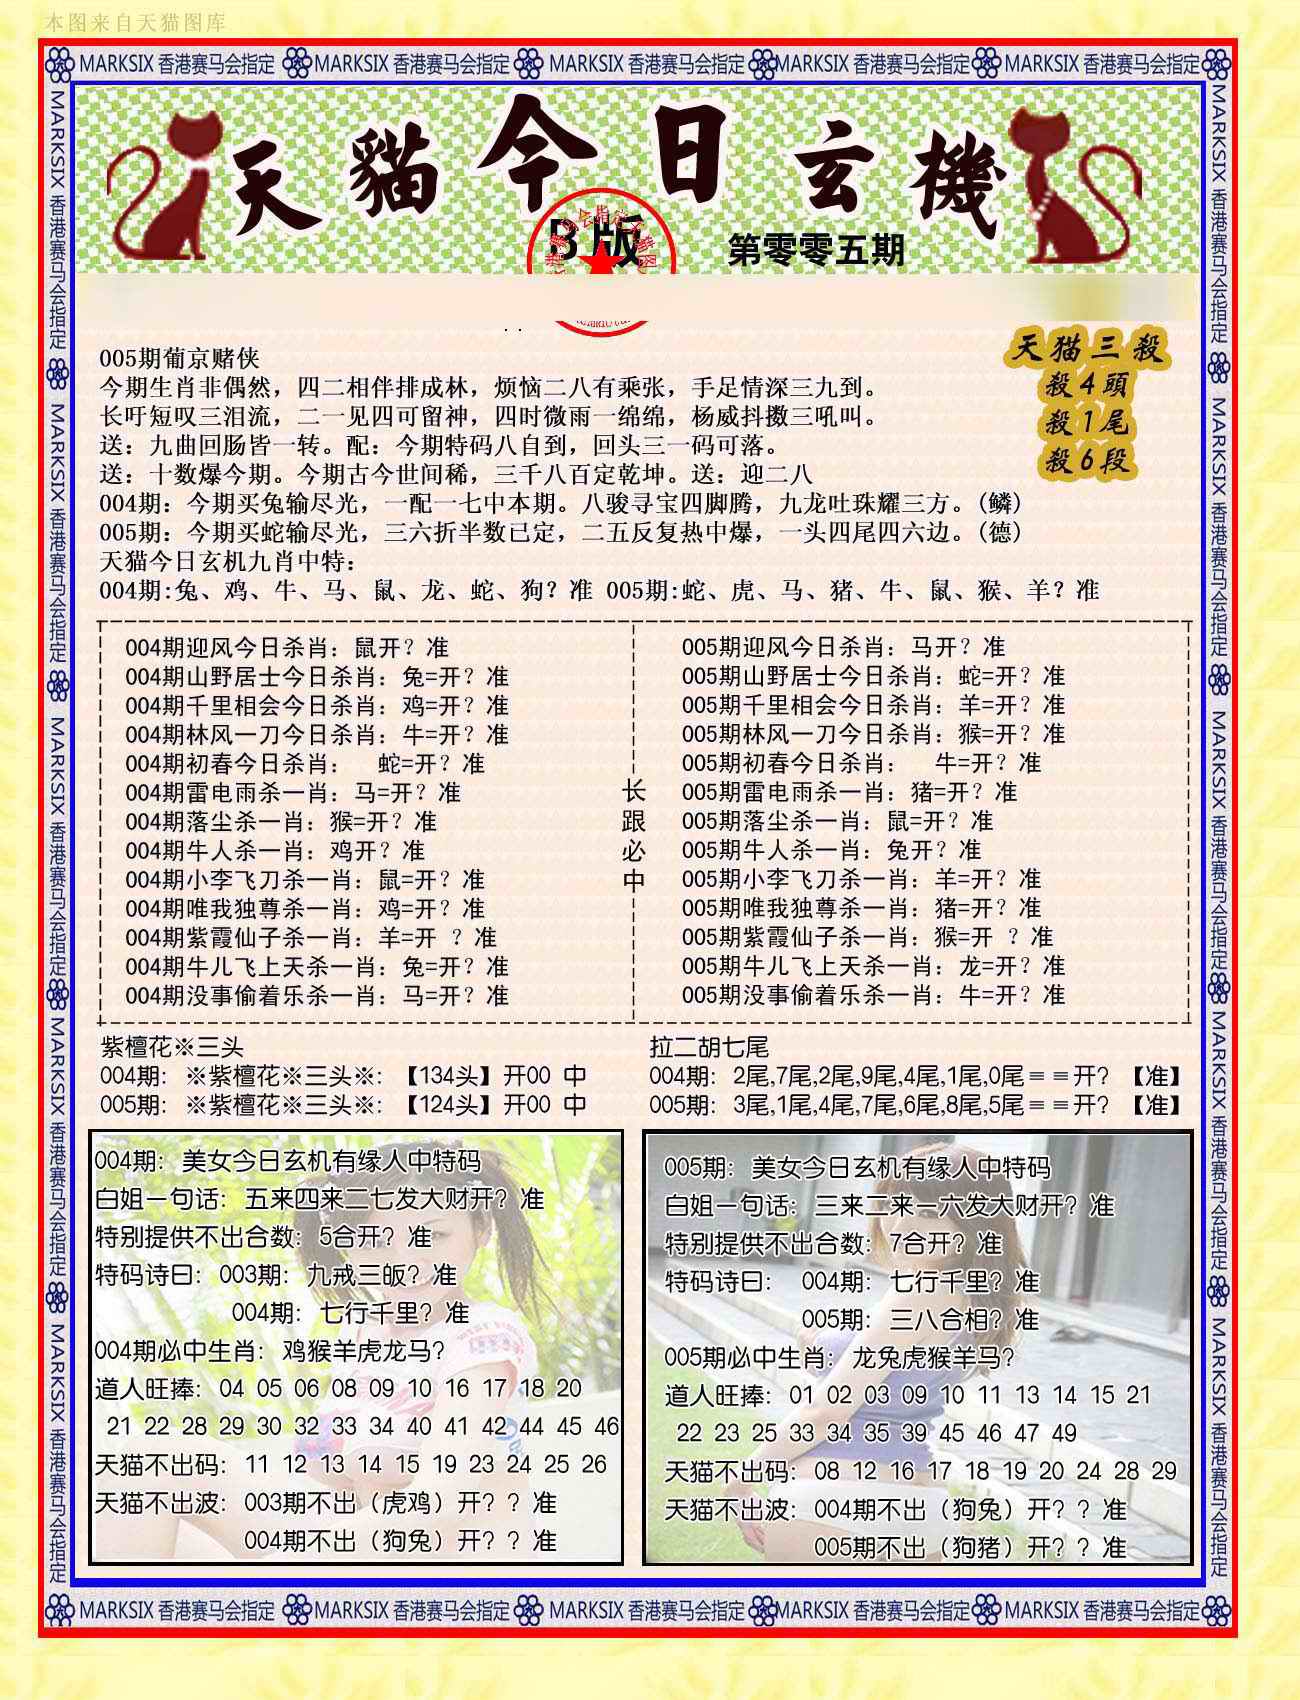 本图来自天猫图库
MARKSIX 香港赛马会指定 MARKSIX 香港赛马会指定 MARKSIX 香港赛马会指定 MARKSIX 香港赛马会指定 MARKSIX 香港赛马会指定
天貓今日玄機
B版
第零零五期
天猫三殺
殺4頭
殺1尾
殺6段
005期葡京赌侠
今期生肖非偶然，四二相伴排成林，烦恼二八有乘张，手足情深三九到。
长吁短叹三泪流，二一见四可留神，四时微雨一绵绵，杨威抖擞三吼叫。
送：九曲回肠皆一转。配：今期特码八自到，回头三一码可落。
送：十数爆今期。今期古今世间稀，三千八百定乾坤。送：迎二八
004期：今期买兔输尽光，一配一七中本期。八骏寻宝四脚腾，九龙吐珠耀三方。(鳞)
005期：今期买蛇输尽光，三六折半数已定，二五反复热中爆，一头四尾四六边。(德)
天猫今日玄机九肖中特：
004期:兔、鸡、牛、马、鼠、龙、蛇、狗？准 005期:蛇、虎、马、猪、牛、鼠、猴、羊？准
004期迎风今日杀肖：鼠开？准
004期山野居士今日杀肖：兔=开？准
004期千里相会今日杀肖：鸡=开？准
004期林风一刀今日杀肖：牛=开？准
004期初春今日杀肖： 蛇=开？准
004期雷电雨杀一肖：马=开？准
004期落尘杀一肖：猴=开？准
004期牛人杀一肖：鸡开？准
004期小李飞刀杀一肖：鼠=开？准
004期唯我独尊杀一肖：鸡=开？准
004期紫霞仙子杀一肖：羊=开 ？准
004期牛儿飞上天杀一肖：兔=开？准
004期没事偷着乐杀一肖：马=开？准
长跟必中
005期迎风今日杀肖：马开？准
005期山野居士今日杀肖：蛇=开？准
005期千里相会今日杀肖：羊=开？准
005期林风一刀今日杀肖：猴=开？准
005期初春今日杀肖： 牛=开？准
005期雷电雨杀一肖：猪=开？准
005期落尘杀一肖：鼠=开？准
005期牛人杀一肖：兔开？准
005期小李飞刀杀一肖：羊=开？准
005期唯我独尊杀一肖：猪=开？准
005期紫霞仙子杀一肖：猴=开 ？准
005期牛儿飞上天杀一肖：龙=开？准
005期没事偷着乐杀一肖：牛=开？准
紫檀花※三头
004期：※紫檀花※三头※：【134头】开00 中
005期：※紫檀花※三头※：【124头】开00 中
拉二胡七尾
004期：2尾,7尾,2尾,9尾,4尾,1尾,0尾＝＝开？【准】
005期：3尾,1尾,4尾,7尾,6尾,8尾,5尾＝＝开？【准】
004期：美女今日玄机有缘人中特码
白姐一句话：五来四来二七发大财开？准
特别提供不出合数：5合开？准
特码诗曰：003期：九戒三皈？准
004期：七行千里？准
004期必中生肖：鸡猴羊虎龙马？
道人旺捧：04 05 06 08 09 10 16 17 18 20
21 22 28 29 30 32 33 34 40 41 42 44 45 46
天猫不出码：11 12 13 14 15 19 23 24 25 26
天猫不出波：003期不出（虎鸡）开？？准
004期不出（狗兔）开？？准
005期：美女今日玄机有缘人中特码
白姐一句话：三来二来一六发大财开？准
特别提供不出合数：7合开？准
特码诗曰： 004期：七行千里？准
005期：三八合相？准
005期必中生肖：龙兔虎猴羊马？
道人旺捧：01 02 03 09 10 11 13 14 15 21
22 23 25 33 34 35 39 45 46 47 49
天猫不出码：08 12 16 17 18 19 20 24 28 29
天猫不出波：004期不出（狗兔）开？？准
005期不出（狗猪）开？？准
MARKSIX 香港赛马会指定 MARKSIX 香港赛马会指定 MARKSIX 香港赛马会指定 MARKSIX 香港赛马会指定 MARKSIX 香港赛马会指定
MARKSIX 香港赛马会指定 MARKSIX 香港赛马会指定 MARKSIX 香港赛马会指定 MARKSIX 香港赛马会指定 MARKSIX 香港赛马会指定
MARKSIX 香港赛马会指定 MARKSIX 香港赛马会指定 MARKSIX 香港赛马会指定 MARKSIX 香港赛马会指定 MARKSIX 香港赛马会指定